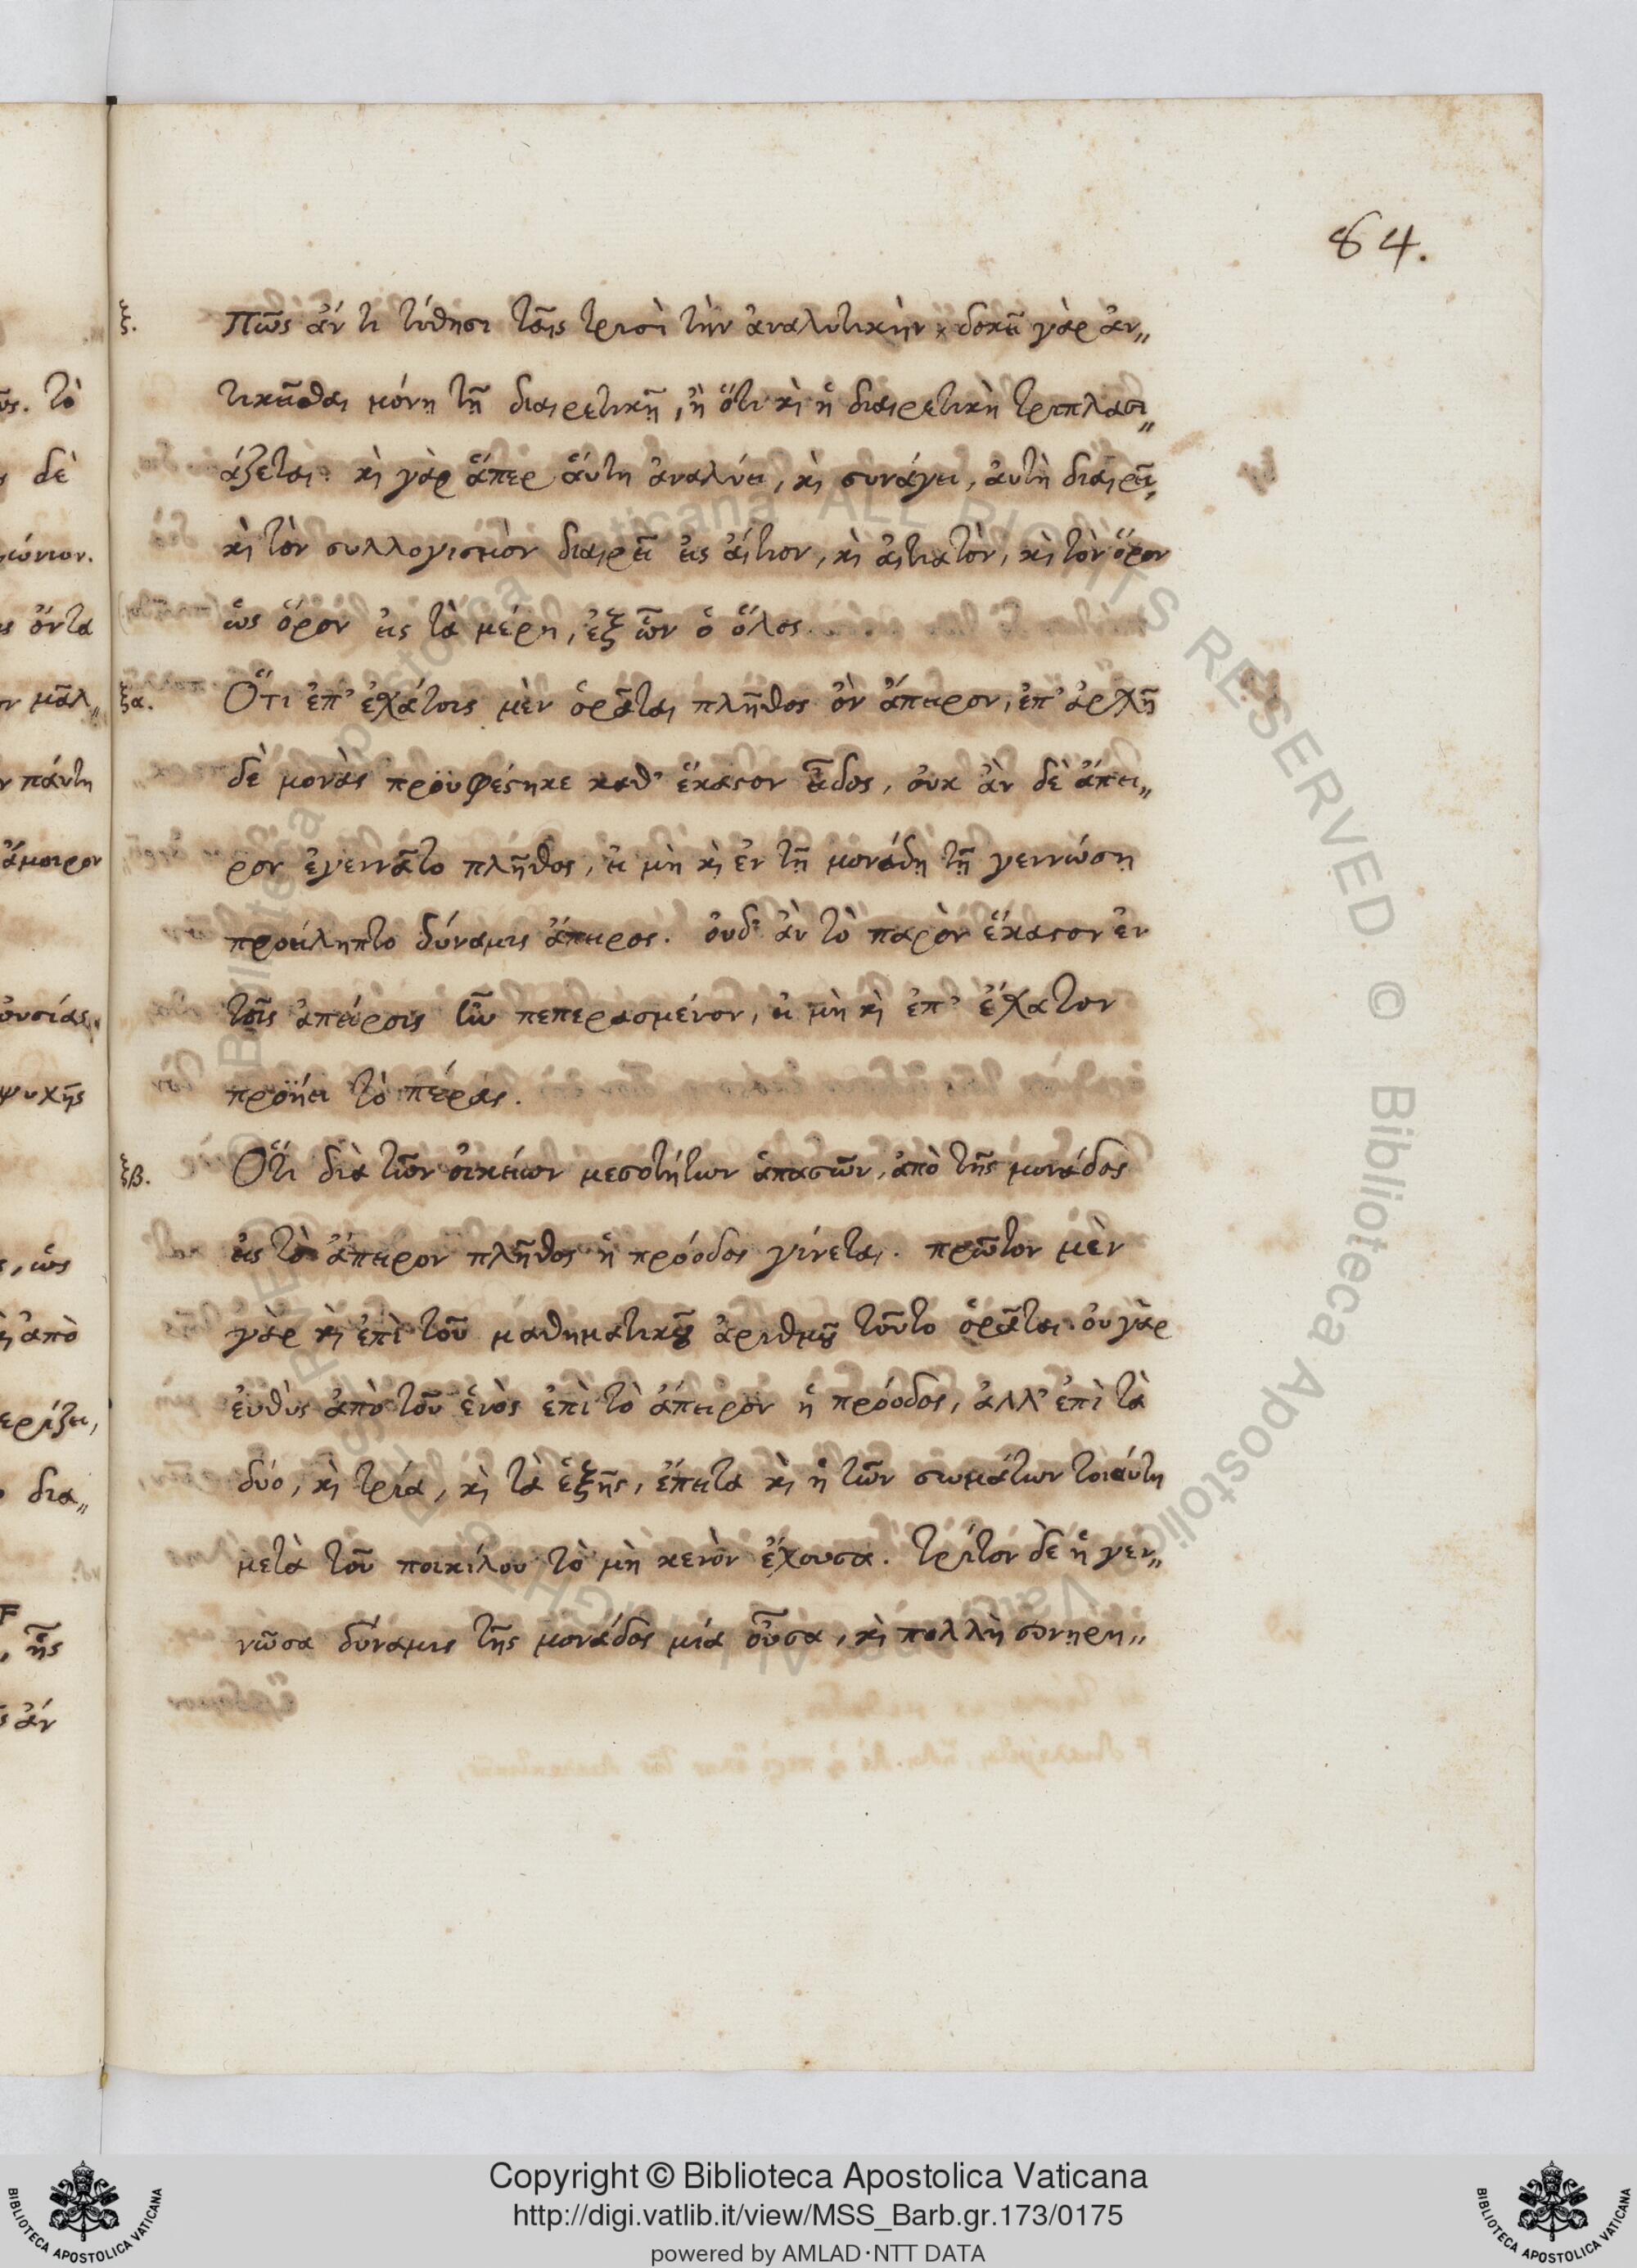 84.
ξ. Πῶς ἄν τι τίθησι ταῖς τρισὶ τὴν ἀναλυτικὴν, δοκεῖ γὰρ ἀν„
τικεῖσθαι μόνη τῇ διαιρετικῇ, ἢ ὅτι κὶ ἡ διαιρετικὴ τριπλασι„
άζεται. κὶ γὰρ ἅπερ ἅυτη ἀναλύει, κὶ συνάγει, ἀυτὴ διαιρεῖ,
κὶ τὸν συλλογισμὸν διαιρεῖ εἰς ἄιτιον, κὶ ἀιτιατὸν, κὶ τὸν ὅρον
ὡς ὅρον εἰς τὰ μέρη, ἐξ ὧν ὁ ὅλος.
ξα. Ὅτι ἐπ' ἐχάτοις μὲν ὁρᾶται πλῆθος ὂν ἄπειρον, ἐπ' ἀρχῇ
δὲ μονὰς προϋφέϛηκε καθ' ἕκαϛον εἶδος, ὀυκ ἂν δὲ ἄπει„
ρον ἐγεννᾶτο πλῆθος, εἰ μὴ κὶ ἐν τῇ μονάδῃ τῇ γεννώσῃ
προείληπτο δύναμις ἄπειρος. ὀυδ' ἂν τὸ παρὸν ἕκαϛον ἐν
τοῖς ἀπείροις ἦν πεπερασμένον, εἰ μὴ κὶ ἐπ' ἔχατον
προΐηει τὸ πέρας.
ξβ. Ὅτι διὰ τῶν ὀικείων μεσοτήτων ἁπασῶν, ἀπὸ τῆς μονάδος
εἰς τὸ ἄπειρον πλῆθος ἡ πρόοδος γίνεται. πρῶτον μὲν
γὰρ κὶ ἐπὶ τοῦ μαθηματικοῦ ἀριθμοῦ τοῦτο ὁρᾶται. ὀυ γὰρ
ἐυθὺς ἀπὸ τοῦ ἑνὸς ἐπὶ τὸ ἄπειρον ἡ πρόοδος, ἀλλ' ἐπὶ τὰ
δύο, κὶ τρία, κὶ τὰ ἑξῆς, ἔπειτα κὶ ἡ τῶν σωμάτων τοιάυτη
μετὰ τοῦ ποικίλου τὸ μὴ κενὸν ἔχουσα. τρίτον δὲ ἡ γεν„
νῶσα δύναμις τῆς μονάδος μία οὖσα, κὶ πολλὴ συνηρη„
Copyright © Biblioteca Apostolica Vaticana
http://digi.vatlib.it/view/MSS_Barb.gr.173/0175
powered by AMLAD·NTT DATA
BIBLIOTECA APOSTOLICA VATICANA
BIBLIOTECA APOSTOLICA VATICANA